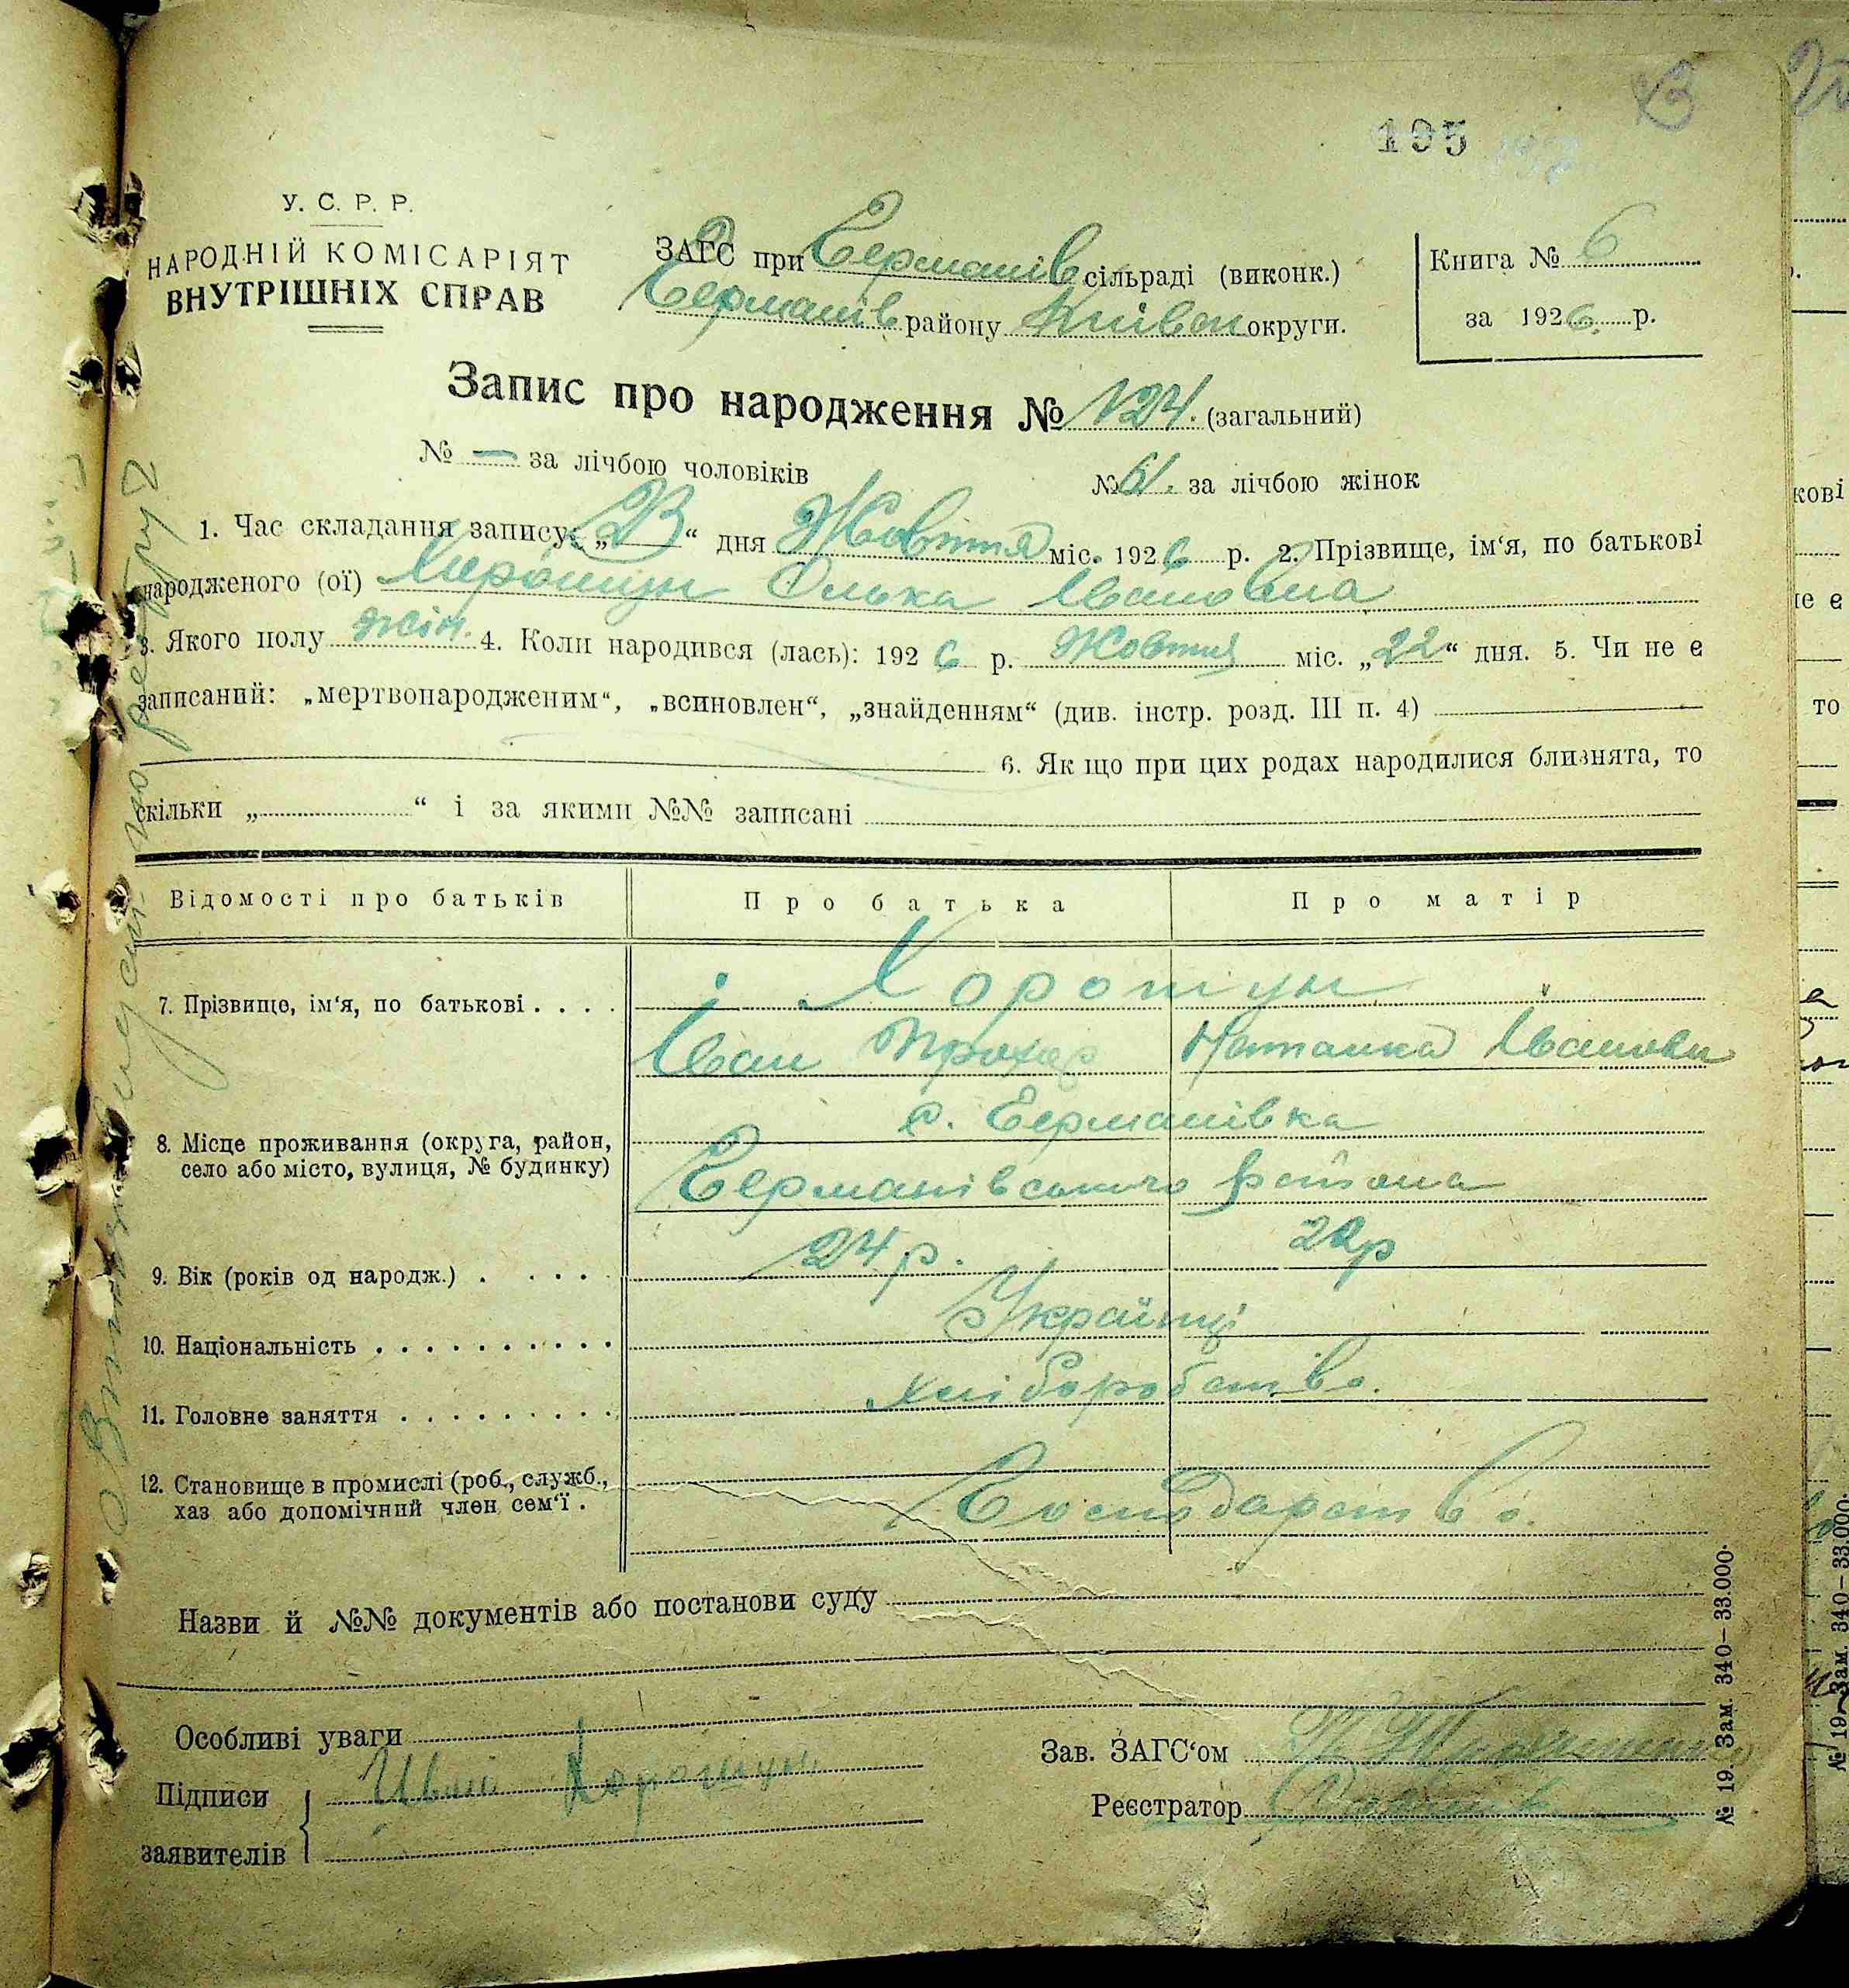 195
У. С. Р. Р.
НАРОДНІЙ КОМІСАРІЯТ
ВНУТРІШНІХ СПРАВ
ЗАГС при Германів сільраді (виконк.)
Германів району Київськ округи.
Книга № 6
за 1926 р.
Запис про народження № 124. (загальний)
№ — за лічбою чоловіків
№ 61. за лічбою жінок
1. Час складання запису: „23“ дня Жовтня міс. 1926 р. 2. Прізвище, ім‘я, по батькові
народженого (ої) Хоротун Олька Івановна
3. Якого полу жін. 4. Коли народився (лась): 1926 р. Жовтня міс. „22“ дня. 5. Чи не є
записаний: „мертвонародженим“, „всиновлен“, „знайденням“ (див. інстр. розд. III п. 4)
6. Як що при цих родах народилися близнята, то
скільки „ “ і за якими №№ записані
Відомості про батьків Про батька Про матір
7. Прізвище, ім‘я, по батькові . . . . Хоротун
Іван Прохор Наталка Іванови
с. Германівка
8. Місце проживання (округа, район,
село або місто, вулиця, № будинку) Германівського района
9. Вік (років од народж.) . . . . . 24 р. 22р
10. Національність . . . . . . . . . . Українці
11. Головне заняття . . . . . . . . . хліборобство.
12. Становище в промислі (роб., служб.,
хаз або допомічний член сем‘ї . Господарство.
Назви й №№ документів або постанови суду
Особливі уваги
Підписи Іван Хоротун
заявителів
Зав. ЗАГС‘ом
Реєстратор
№ 19. Зам. 340–33.000.